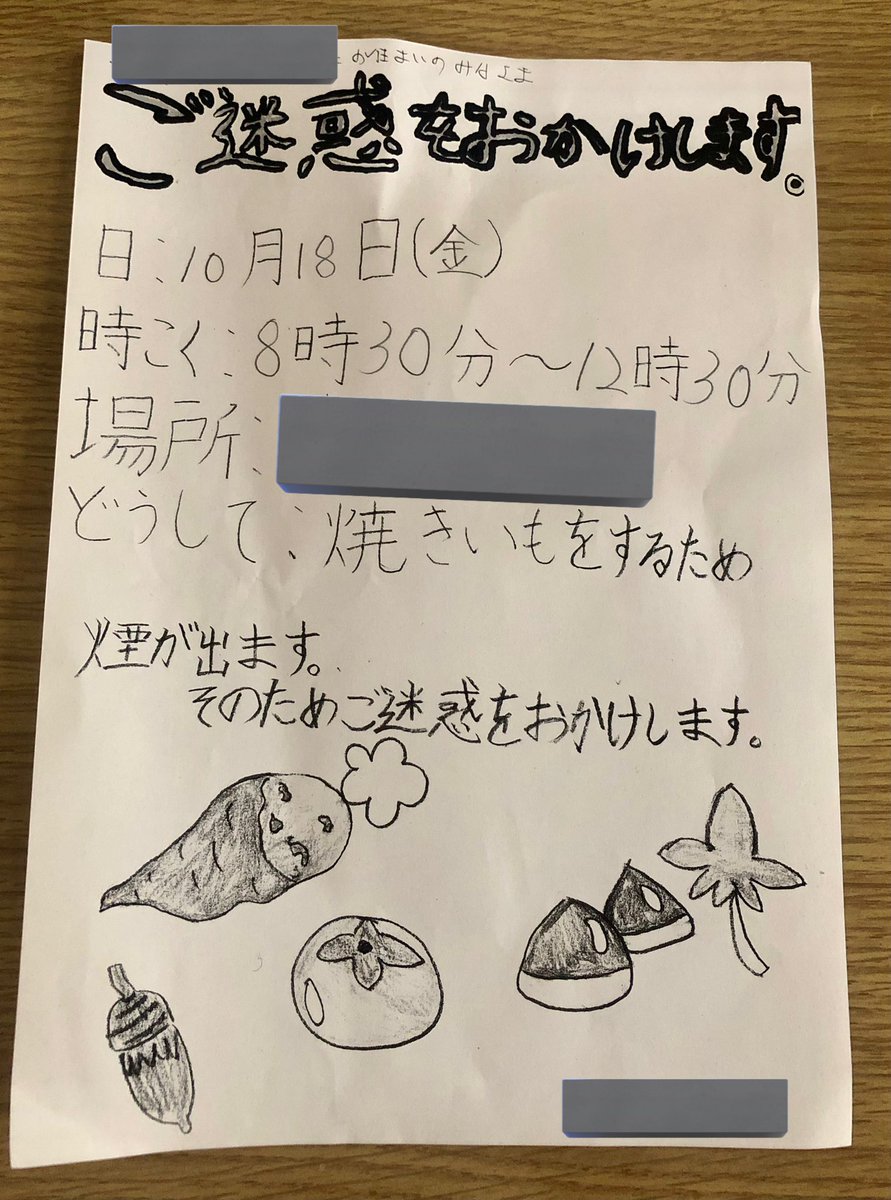 お住まいのみなさま
ご迷惑をおかけします。
日:10月18日(金)
時こく:8時30分〜12時30分
場所:
どうして:焼きいもをするため
煙が出ます。
そのためご迷惑をおかけします。